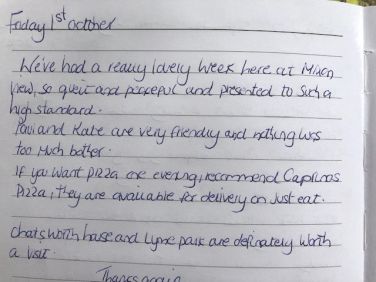 Friday 1st october
We've had a really lovely week here at Mixon
view, so quiet and peaceful and presented to such a
high standard.
Paul and Kate are very friendly and nothing was
too much bother.
If you want pizza one evening, recommend Caprinos
Pizza, they are available for delivery on Just eat.
chatsworth house and Lyme park are definately worth
a visit.
Thanks again